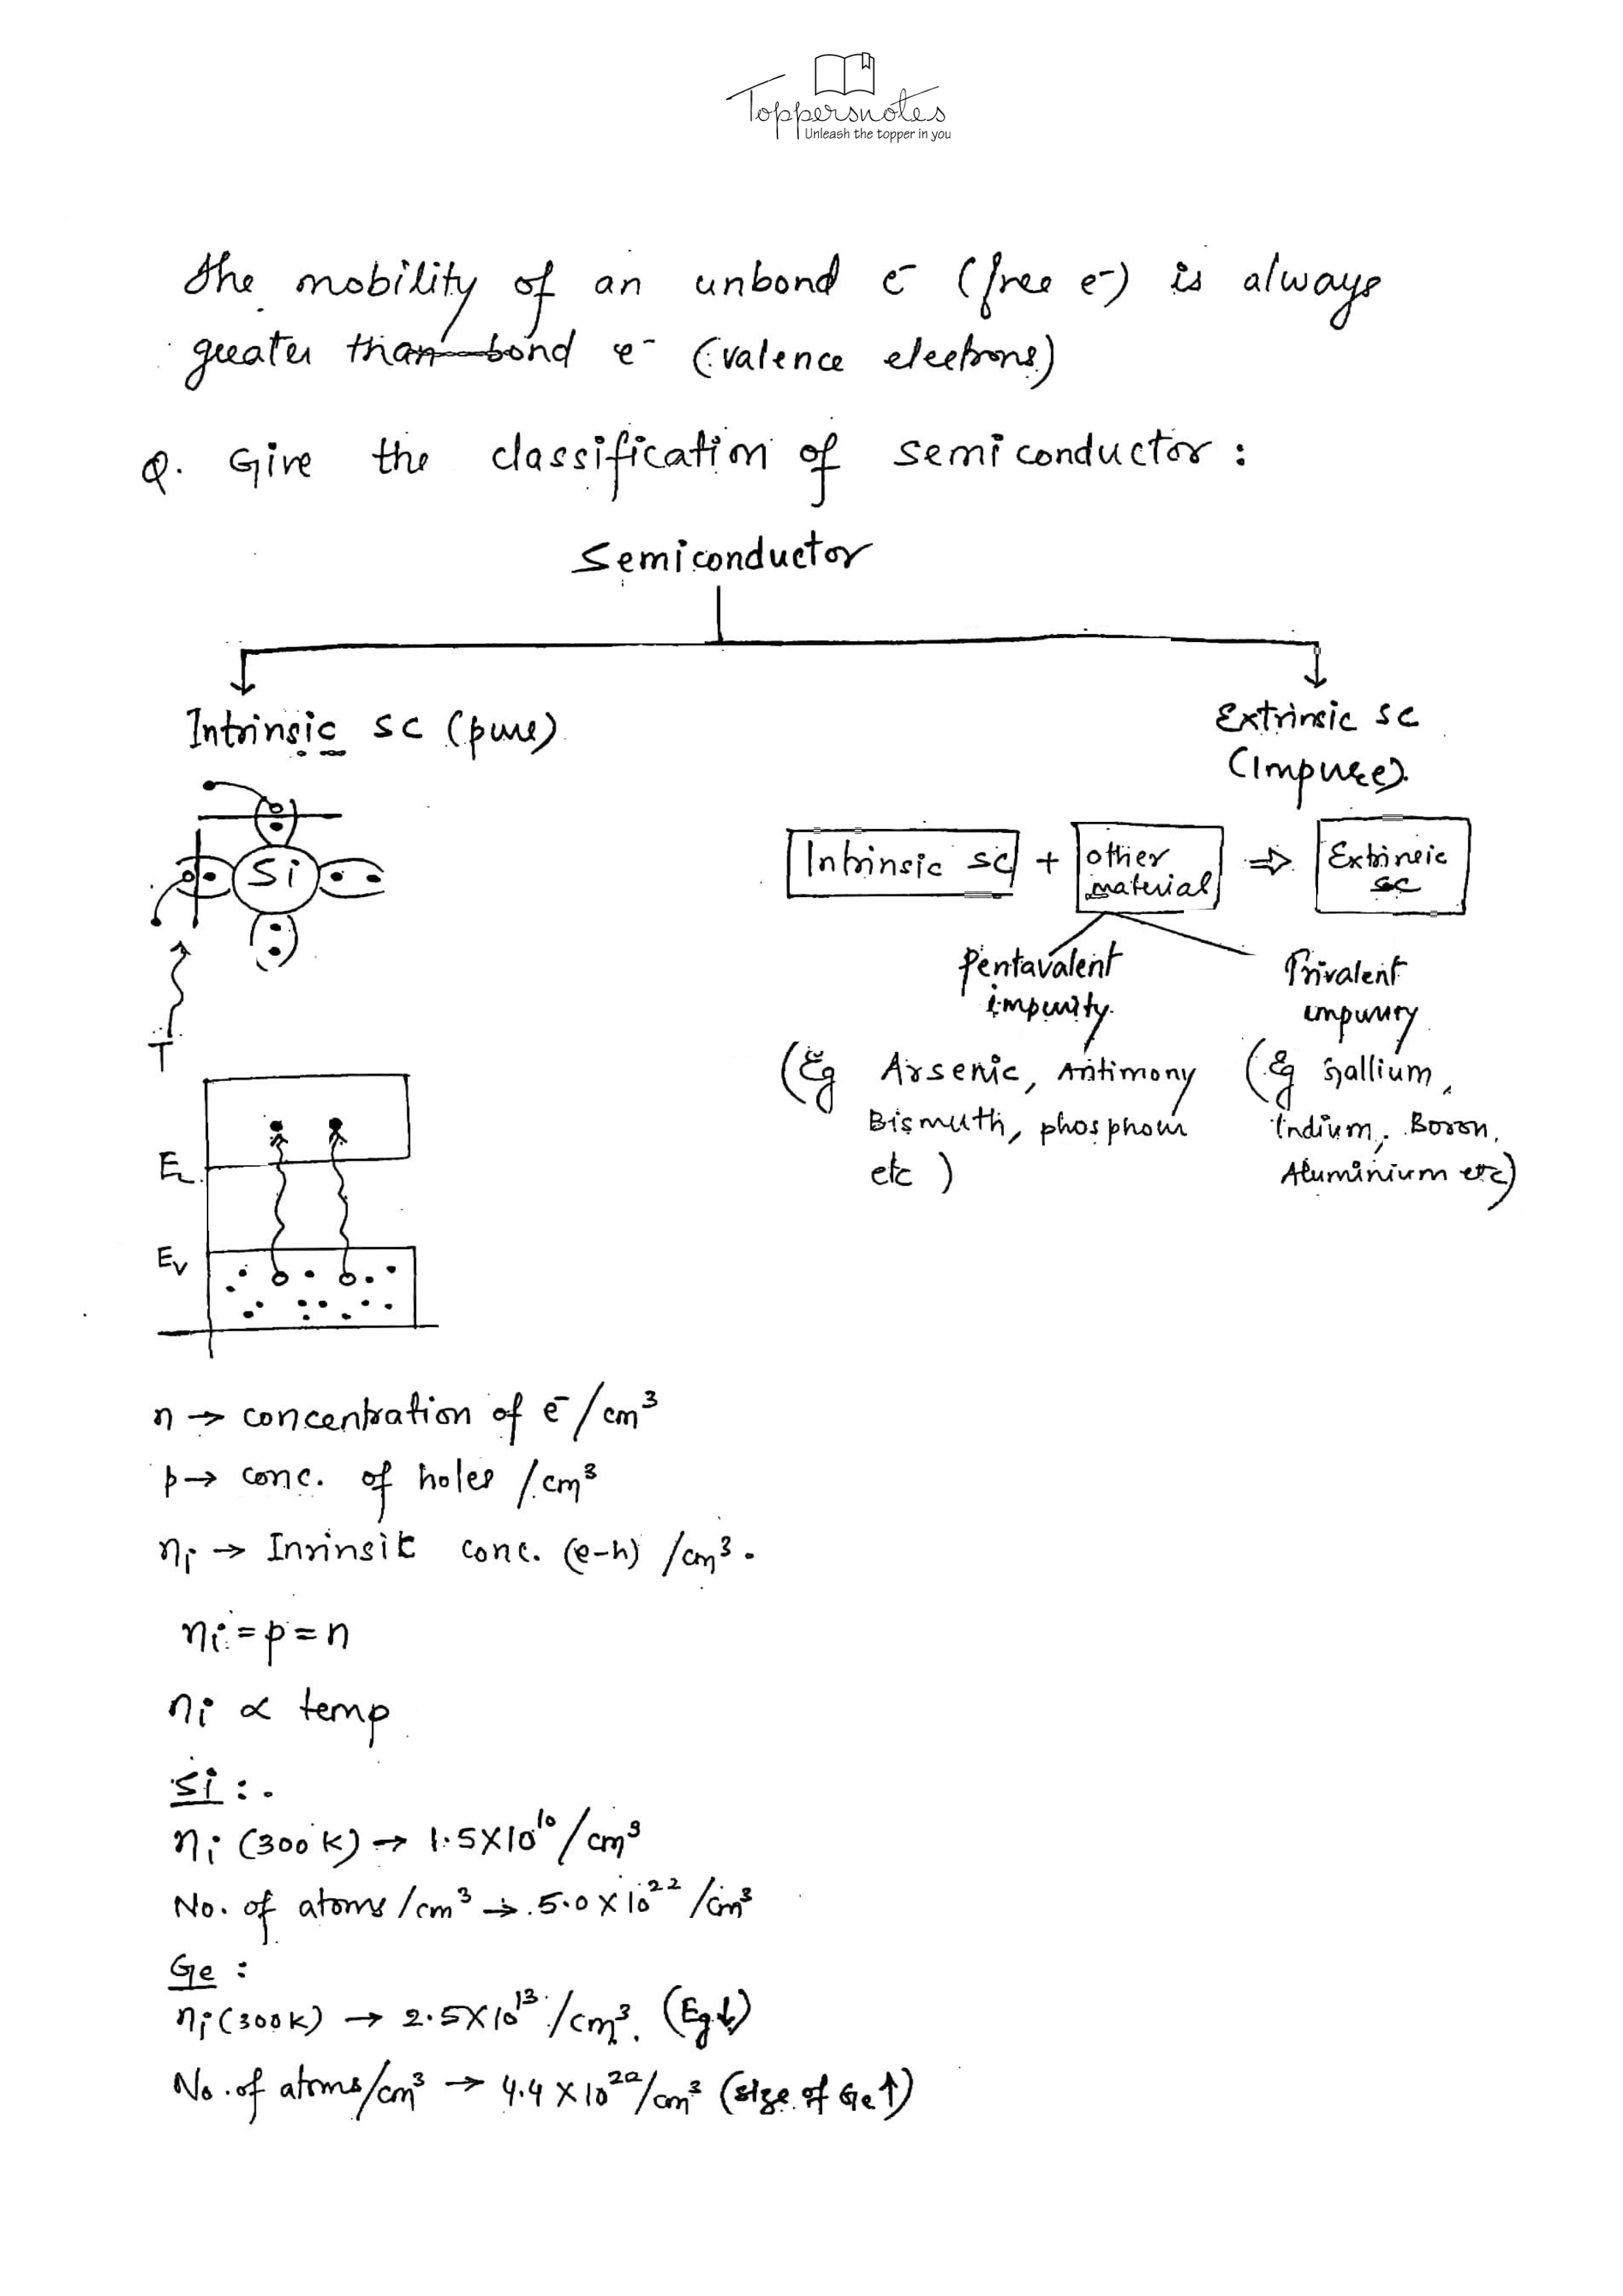 Toppersnotes
Unleash the topper in you
The mobility of an unbond e⁻ (free e⁻) is always
greater than bond e⁻ (valence electrons)
Q. Give the classification of semiconductor :
Semiconductor
Intrinsic SC (pure)
Extrinsic SC
(Impure)
Si
T
Intrinsic SC + other material ⇒ Extrinsic SC
Pentavalent impurity
Trivalent impurity
(Eg Arsenic, Antimony
Bismuth, phosphour
etc )
(Eg Gallium,
Indium, Boron,
Aluminium etc)
Ec
Ev
n → concentration of e⁻/cm³
p → conc. of holes /cm³
ni → Inrinsic conc. (e-h) /cm³.
ni = p = n
ni ∝ temp
Si :
ni (300 K) → 1.5X10¹⁰/cm³
No. of atoms /cm³ → 5.0 X 10²² /cm³
Ge :
ni (300K) → 2.5X10¹³/cm³. (Eg↓)
No. of atoms/cm³ → 4.4 X 10²²/cm³ (size of Ge↑)